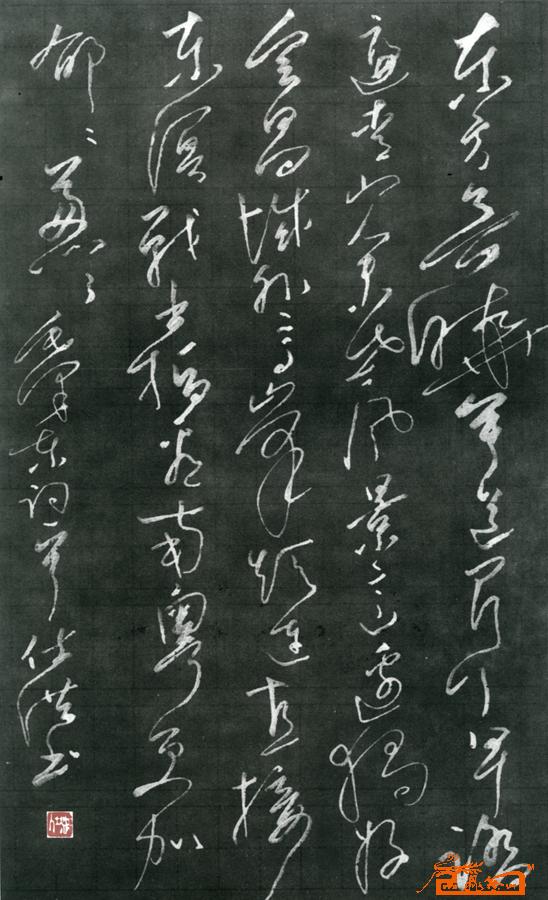 东方欲晓莫道君行早踏
遍青山人未老风景这边独好
会昌城外高峰颠连直接
东溟战士指看南粤更加
郁々葱々毛泽东词一首仕洪书